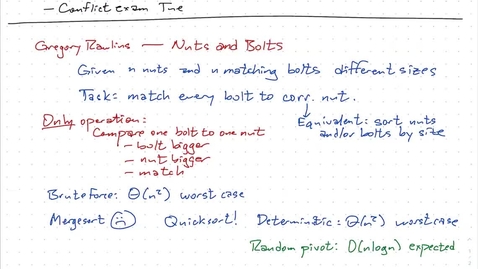 — Conflict exam Tue
Gregory Rawlins — Nuts and Bolts
Given n nuts and n matching bolts different sizes
Task = match every bolt to corr. nut.
Only operation:
Compare one bolt to one nut
— bolt bigger
— nut bigger
— match
Equivalent: sort nuts
and/or bolts by size
Brute force: Θ(n²) worst case
Mergesort ☹ Quicksort! Deterministic: Θ(n²) worst case
Random pivot: O(n log n) expected